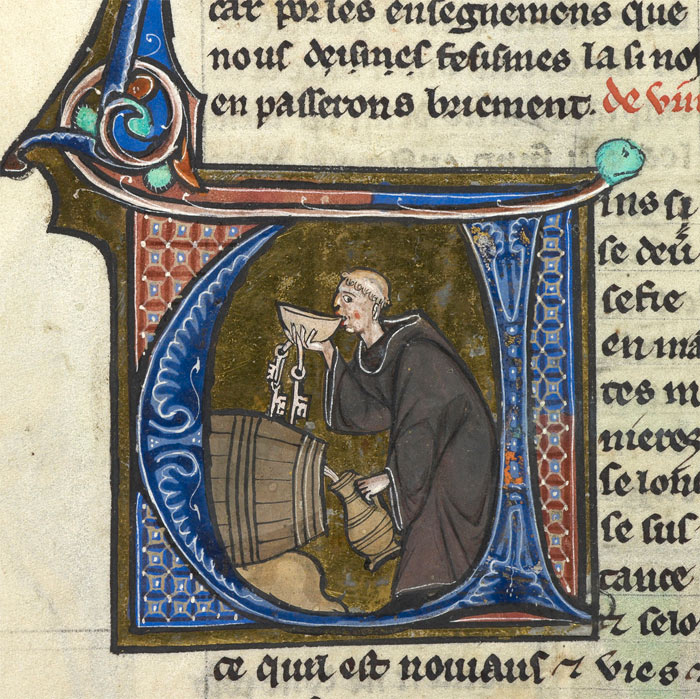 car por les enseguemens que
nous deismes fesismes la si nos
en passerons briement. de vin
Uins si
se deu
sefie
en ma
tes m
nieres
se lonc
se sus
tance
⁊ selo
ce quil est nouiaus ⁊ vies